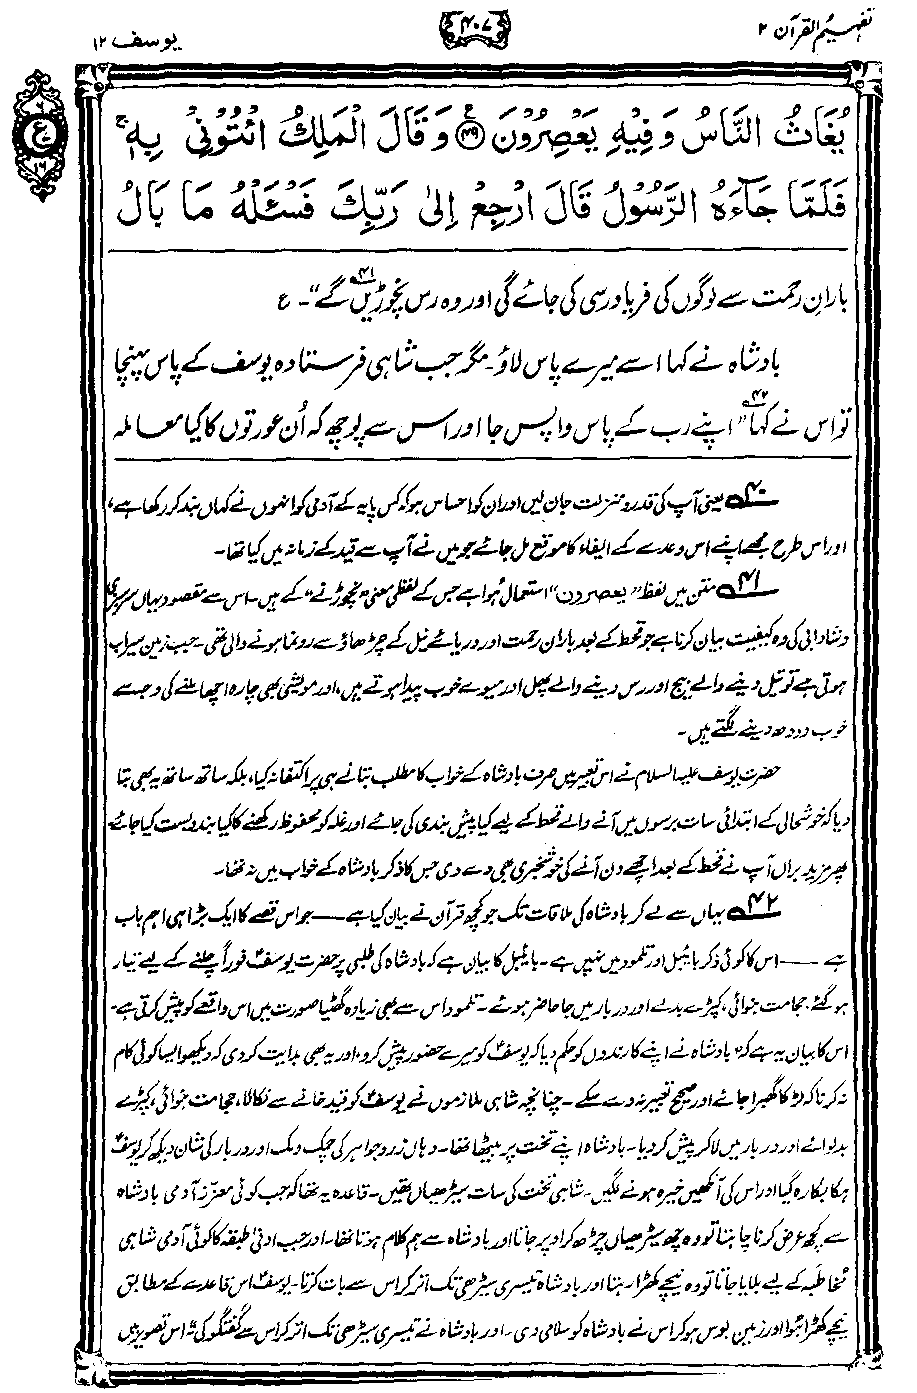 تفہیم القرآن ۲
۴۰۷
یوسف ۱۲
ع
۱۶
يُغَاثُ النَّاسُ وَفِيْهِ يَعْصِرُوْنَ ۴۹ وَقَالَ الْمَلِكُ ائْتُوْنِيْ بِهٖ ۚ
فَلَمَّا جَآءَهُ الرَّسُوْلُ قَالَ ارْجِعْ اِلٰى رَبِّكَ فَسْـَٔلْهُ مَا بَالُ
بارانِ رحمت سے لوگوں کی فریاد رسی کی جائے گی اور وہ رس نچوڑیں۴۱ گے“۔ ع
بادشاہ نے کہا اسے میرے پاس لاؤ۔ مگر جب شاہی فرستادہ یوسف کے پاس پہنچا
تو اس نے کہا۴۲ ”اپنے رب کے پاس واپس جا اور اس سے پوچھ کہ اُن عورتوں کا کیا معاملہ
۴۰ یعنی آپ کی قدر و منزلت جان لیں اور ان کو احساس ہو کہ کس پایہ کے آدمی کو انہوں نے کہاں بند کر رکھا ہے،
اور اس طرح مجھے اپنے اس وعدے کے ایفاء کا موقع مل جائے جو میں نے آپ سے قید کے زمانہ میں کیا تھا۔
۴۱ متن میں لفظ ”یعصرون“ استعمال ہوا ہے جس کے لفظی معنی ”نچوڑنے“ کے ہیں۔ اس سے مقصود یہاں سرسبزی
و شادابی کی وہ کیفیت بیان کرنا ہے جو قحط کے بعد بارانِ رحمت اور دریائے نیل کے چڑھاؤ سے رونما ہونے والی تھی۔ جب زمین سیراب
ہوتی ہے تو تیل دینے والے بیج اور رس دینے والے پھل اور میوے خوب پیدا ہوتے ہیں، اور مویشی بھی چارہ اچھا ملنے کی وجہ سے
خوب دودھ دینے لگتے ہیں۔
حضرت یوسف علیہ السلام نے اس تعبیر میں صرف بادشاہ کے خواب کا مطلب بتانے ہی پر اکتفا نہ کیا، بلکہ ساتھ ساتھ یہ بھی بتا
دیا کہ خوشحالی کے ابتدائی سات برسوں میں آنے والے قحط کے لیے کیا پیش بندی کی جائے اور غلہ کو محفوظ رکھنے کا کیا بندوبست کیا جائے۔
پھر مزید براں آپ نے قحط کے بعد اچھے دن آنے کی خوشخبری بھی دے دی جس کا ذکر بادشاہ کے خواب میں نہ تھا۔
۴۲ یہاں سے لے کر بادشاہ کی ملاقات تک جو کچھ قرآن نے بیان کیا ہے —— جو اس قصے کا ایک بڑا ہی اہم باب
ہے —— اس کا کوئی ذکر بائیبل اور تلمود میں نہیں ہے۔ بائیبل کا بیان ہے کہ بادشاہ کی طلبی پر حضرت یوسفؑ فوراً چلنے کے لیے تیار
ہو گئے، حجامت بنوائی، کپڑے بدلے اور دربار میں جا حاضر ہوئے۔ تلمود اس سے بھی زیادہ گھٹیا صورت میں اس واقعے کو پیش کرتی ہے۔
اس کا بیان یہ ہے کہ ”بادشاہ نے اپنے کارندوں کو حکم دیا کہ یوسفؑ کو میرے حضور پیش کرو، اور یہ بھی ہدایت کر دی کہ دیکھو ایسا کوئی کام
نہ کرنا کہ لڑکا گھبرا جائے اور صحیح تعبیر نہ دے سکے۔ چنانچہ شاہی ملازموں نے یوسفؑ کو قید خانے سے نکالا، حجامت بنوائی، کپڑے
بدلوائے اور دربار میں لا کر پیش کر دیا۔ بادشاہ اپنے تخت پر بیٹھا تھا۔ وہاں زر و جواہر کی چمک دمک اور دربار کی شان دیکھ کر یوسفؑ
ہکا بکا رہ گیا اور اس کی آنکھیں خیرہ ہونے لگیں۔ شاہی تخت کی سات سیڑھیاں تھیں۔ قاعدہ یہ تھا کہ جب کوئی معزز آدمی بادشاہ
سے کچھ عرض کرنا چاہتا تو وہ چھ سیڑھیاں چڑھ کر اوپر جاتا اور بادشاہ سے ہم کلام ہوتا تھا۔ اور جب ادنیٰ طبقہ کا کوئی آدمی شاہی
مُخاطَبہ کے لیے بلایا جاتا تو وہ نیچے کھڑا رہتا اور بادشاہ تیسری سیڑھی تک اتر کر اس سے بات کرتا۔ یوسفؑ اس قاعدے کے مطابق
نیچے کھڑا ہُوا اور زمین بوس ہو کر اس نے بادشاہ کو سلامی دی۔ اور بادشاہ نے تیسری سیڑھی تک اتر کر اس سے گفتگو کی“۔ اس تصویر میں